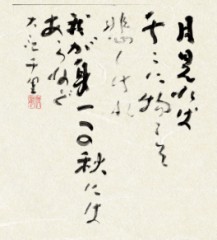 月見れば
千々に物こそ
悲しけれ
我が身一つの秋には
あらねど
大江千里